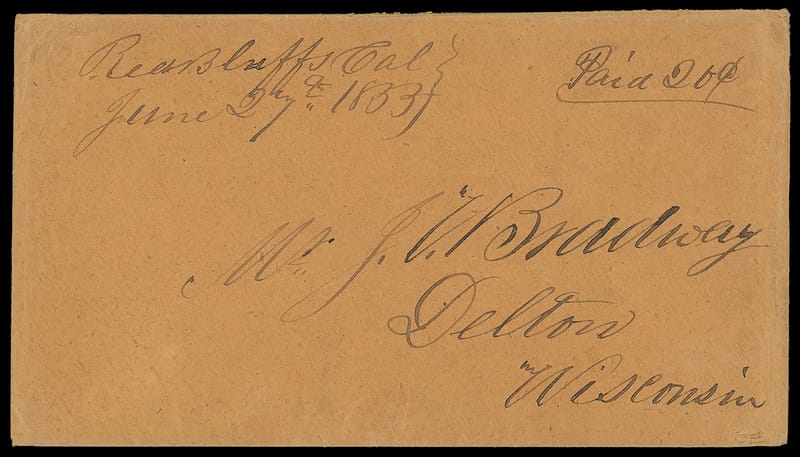 Red Bluffs Cal
June 27th 1853
Paid 20¢
Mr. J. V. Bradway
Delton
Wisconsin